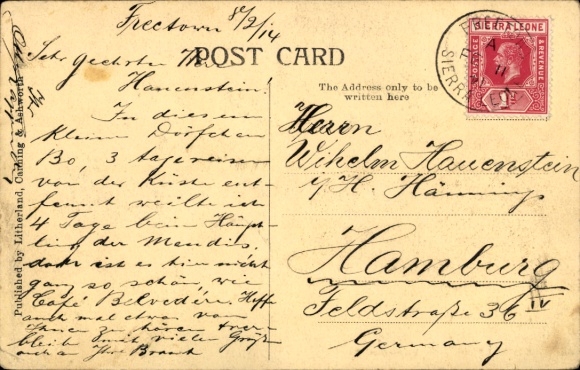 Freetown 8/2/14
Sehr geehrter
Hauenstein!
In diesem
kleinen Dörfchen
Bo, 3 tagereisen
von der Küste ent-
fernt weilte ich
4 Tage beim Häupt-
ling der Mendis.
doch ist es hier nicht
ganz so schön, wie
Café Belvedère. Hoffe
auch mal etwas von
Ihnen zu hören &
bleib mit vielen Grüßen
auch an Ihre Braut
POST CARD
The Address only to be
written here
Herrn
Wilhelm Hauenstein
p/H. Hännings
Hamburg
Feldstraße 36
IV
Germany
SIERRA LEONE
POSTAGE
& REVENUE
1d
FREETOWN
A
SIERRA LEONE
Published by Litherland, Canning & Ashworth